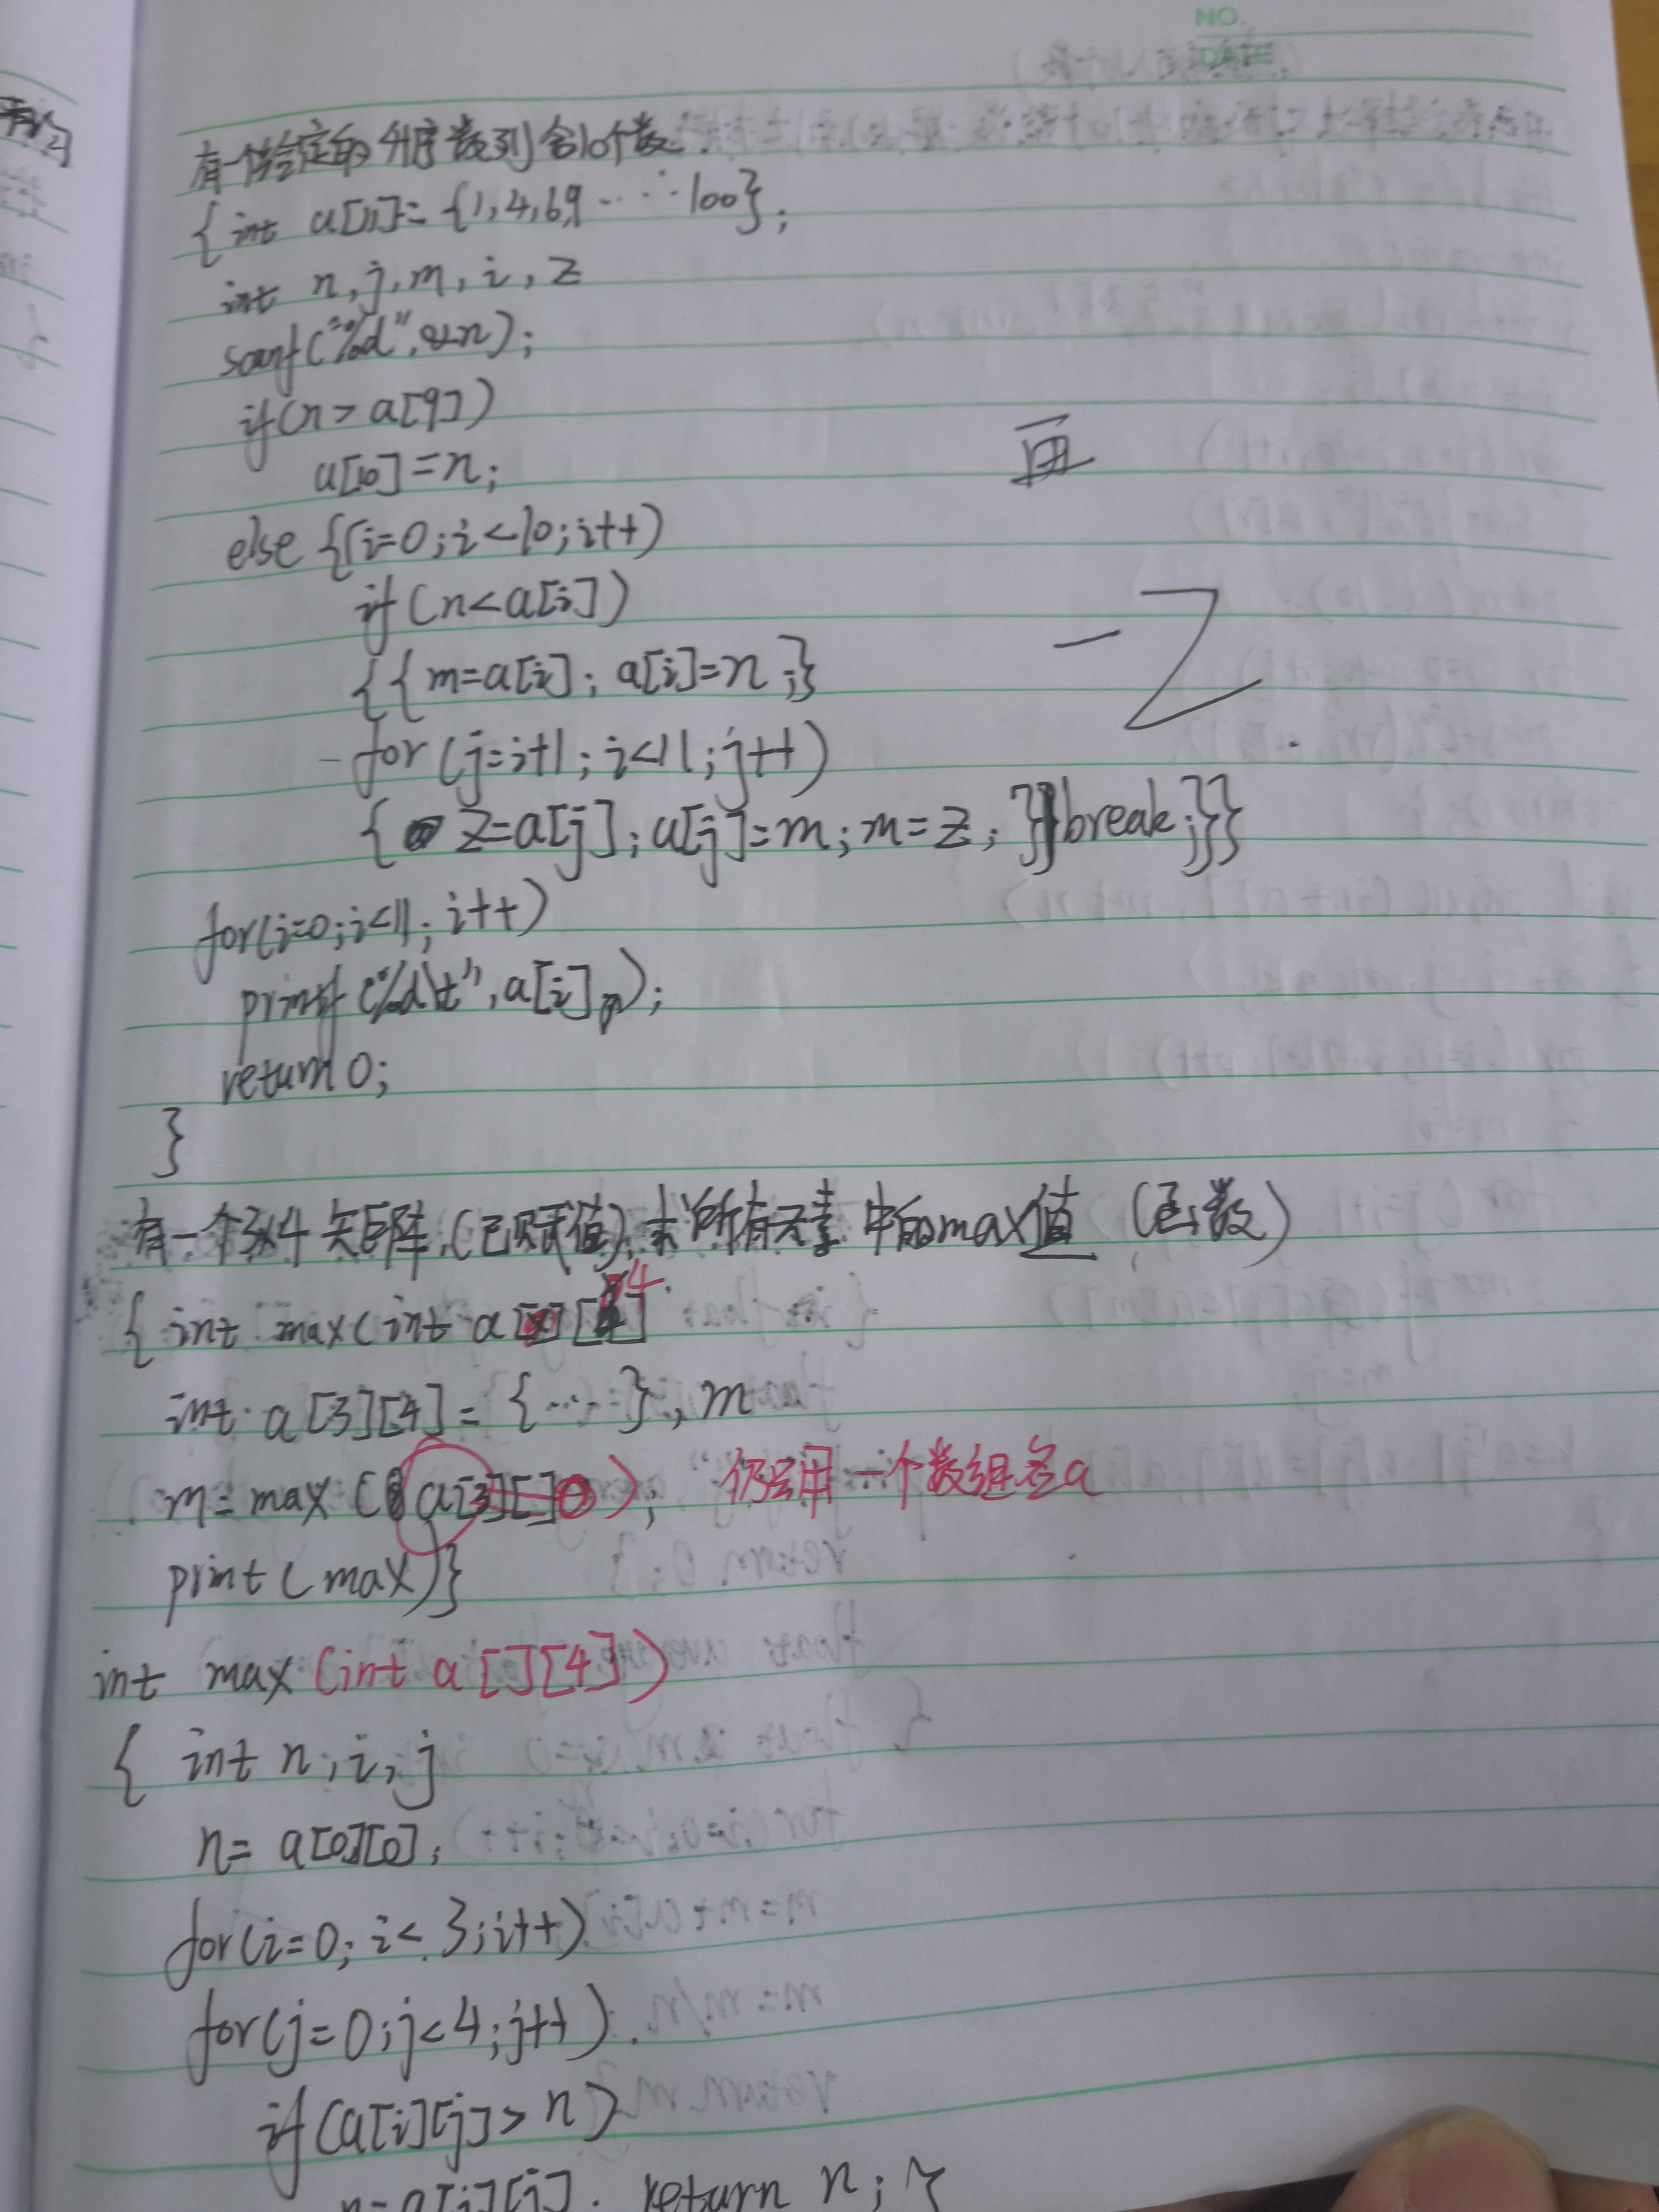 NO.
DATE
有一个给定的升序数列含10个数.
{ int a[11]={1,4,6,9 ······100};
int n,j,m,i,z
scanf("%d",&n);
if(n>a[9])
a[10]=n;
else {(i=0;i<10;i++)
if(n<a[i])
{{m=a[i];a[i]=n;}
for(j=i+1;i<11;j++)
{z=a[j];a[j]=m;m=z;}break;}}
for(i=0;i<11;i++)
printf("%d\t",a[i]);
return 0;
}
有一个3x4矩阵,(已赋值),求所有元素中的max值(函数)
{ int max(int a[][4]
int a[3][4]={····},m
m=max(a[3][]); 仍写用一个数组名a
print(max)}
int max(int a[][4])
{ int n,i,j
n=a[0][0];
for(i=0;i<3;i++)
for(j=0;j<4;j++)
if(a[i][j]>n)
n=a[i][j]. return n;}